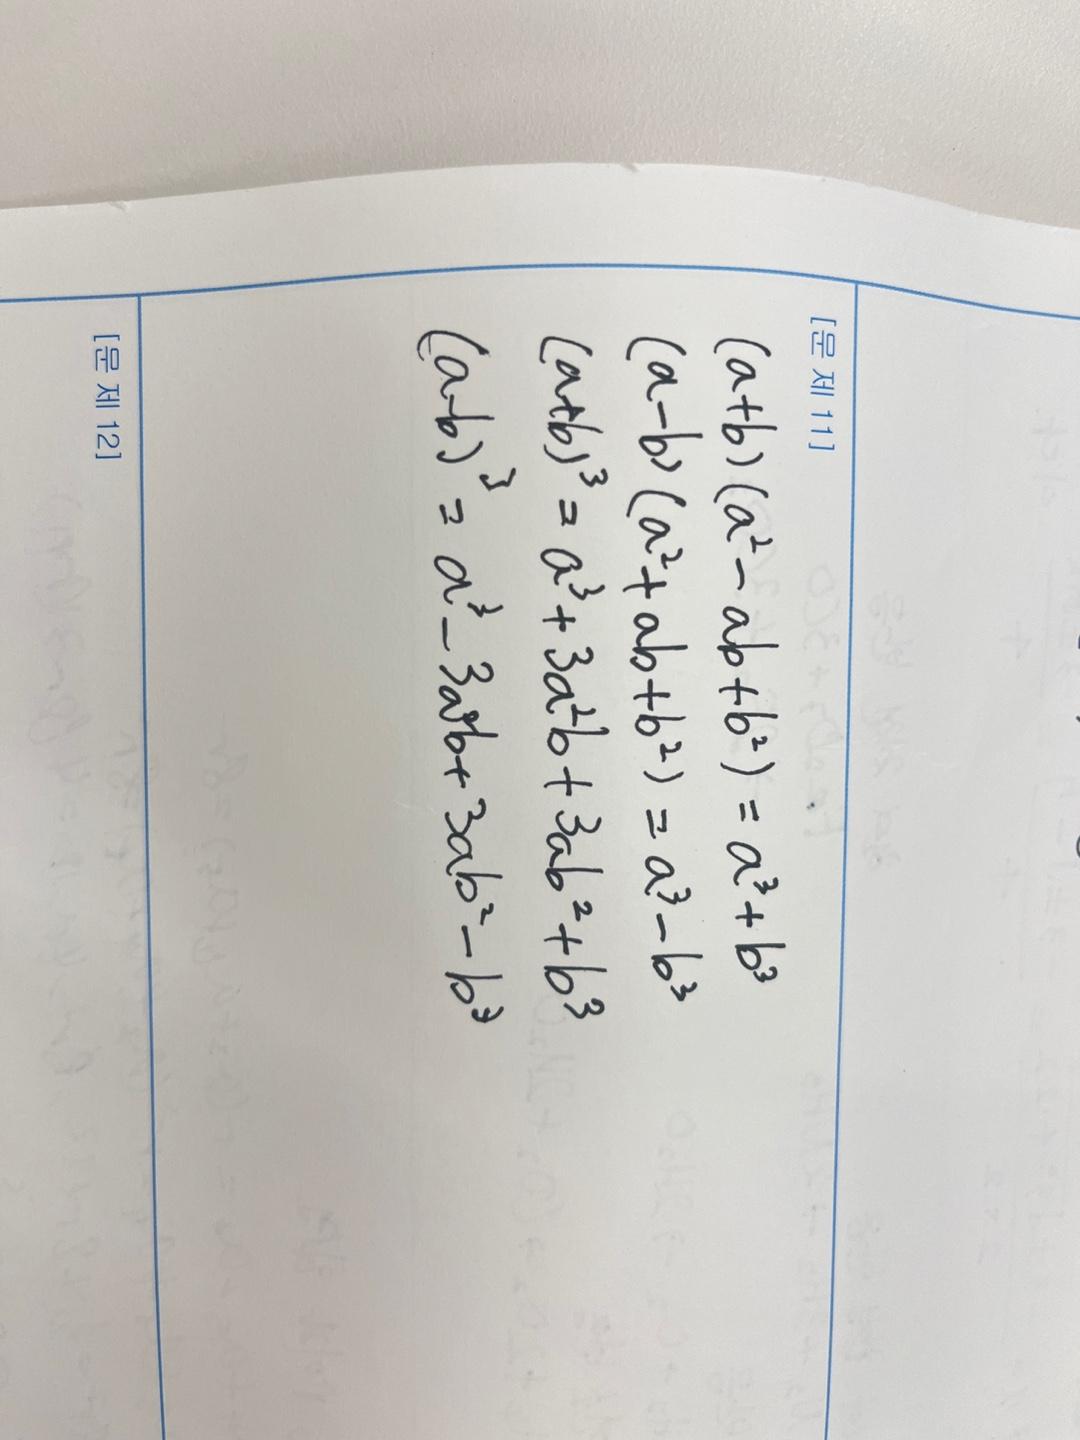 [문제 11]
(a+b)(a²-ab+b²)=a³+b³
(a-b)(a²+ab+b²)=a³-b³
(a+b)³=a³+3a²b+3ab²+b³
(a-b)³=a³-3a²b+3ab²-b³
[문제 12]